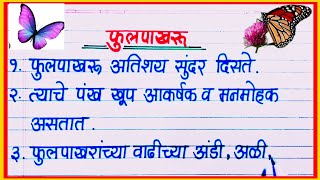 फुलपाखरू
१. फुलपाखरू अतिशय सुंदर दिसते.
२. त्याचे पंख खूप आकर्षक व मनमोहक
असतात.
३. फुलपाखरांच्या वाढीच्या अंडी, अळी,